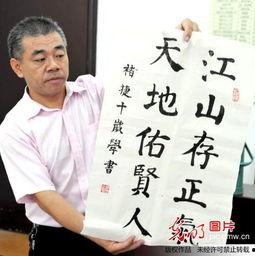 江山存正氣
天地佑賢人
褚捷十歲學書
图片
版权作品 未经许可禁止转载